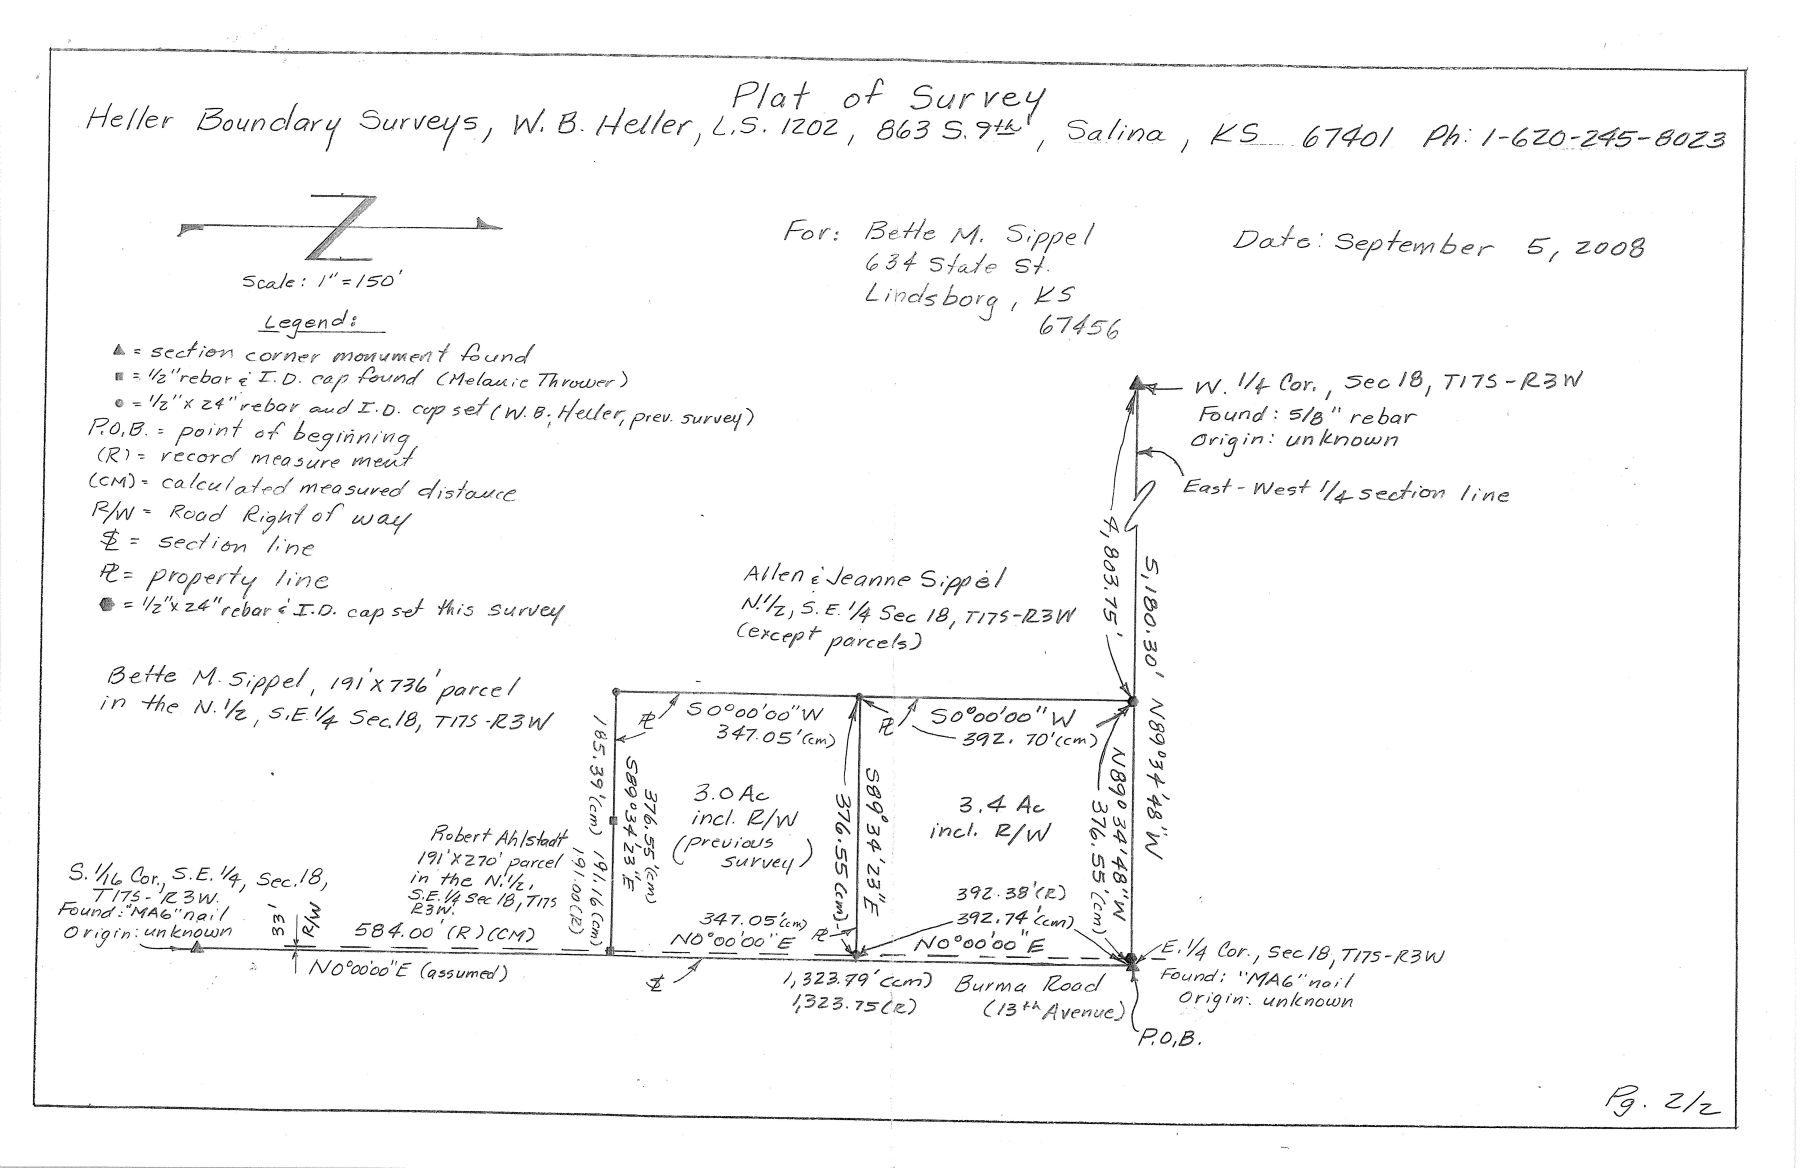 Plat of Survey
Heller Boundary Surveys, W. B. Heller, L.S. 1202, 863 S. 9th, Salina, KS 67401 Ph: 1-620-245-8023
Z
Scale: 1" = 150'
For: Bette M. Sippel
634 State St.
Lindsborg, KS
67456
Date: September 5, 2008
Legend:
▲ = section corner monument found
■ = 1/2" rebar & I.D. cap found (Melanie Thrower)
● = 1/2" x 24" rebar and I.D. cap set (W. B. Heller, prev. survey)
P.O.B. = point of beginning
(R) = record measurement
(CM) = calculated measured distance
R/W = Road Right of way
SL = section line
PL = property line
⬢ = 1/2" x 24" rebar & I.D. cap set this survey
W. 1/4 Cor., Sec 18, T17S-R3W
Found: 5/8" rebar
Origin: unknown
East-West 1/4 section line
4,803.75'
5,180.30' N89°34'48"W
Allen & Jeanne Sippel
N.1/2, S.E.1/4 Sec 18, T17S-R3W
(except parcels)
Bette M. Sippel, 191' X 736' parcel
in the N.1/2, S.E.1/4 Sec.18, T17S-R3W
PL
S0°00'00"W
347.05'(cm)
PL
S0°00'00"W
392.70'(cm)
185.39'(cm)
S89°34'23"E
376.55'(cm)
3.0 Ac
incl. R/W
(previous
survey)
376.55(cm)
S89°34'23"E
3.4 Ac
incl. R/W
N89°34'48"W
376.55'(cm)
Robert Ahlstadt
191'X270' parcel
in the N.1/2,
S.E.1/4 Sec 18, T17S
R3W.
191.16(cm)
191.00(R)
S. 1/16 Cor., S.E. 1/4, Sec. 18,
T17S-R3W.
Found: "MAG" nail
Origin: unknown
33'
R/W
584.00' (R)(CM)
N0°00'00"E (assumed)
347.05'(cm)
N0°00'00"E
PL
392.38'(R)
392.74'(cm)
N0°00'00"E
SL
1,323.79'(cm)
1,323.75(R)
Burma Road
(13th Avenue)
E. 1/4 Cor., Sec 18, T17S-R3W
Found: "MAG" nail
Origin: unknown
P.O.B.
Pg. 2/2